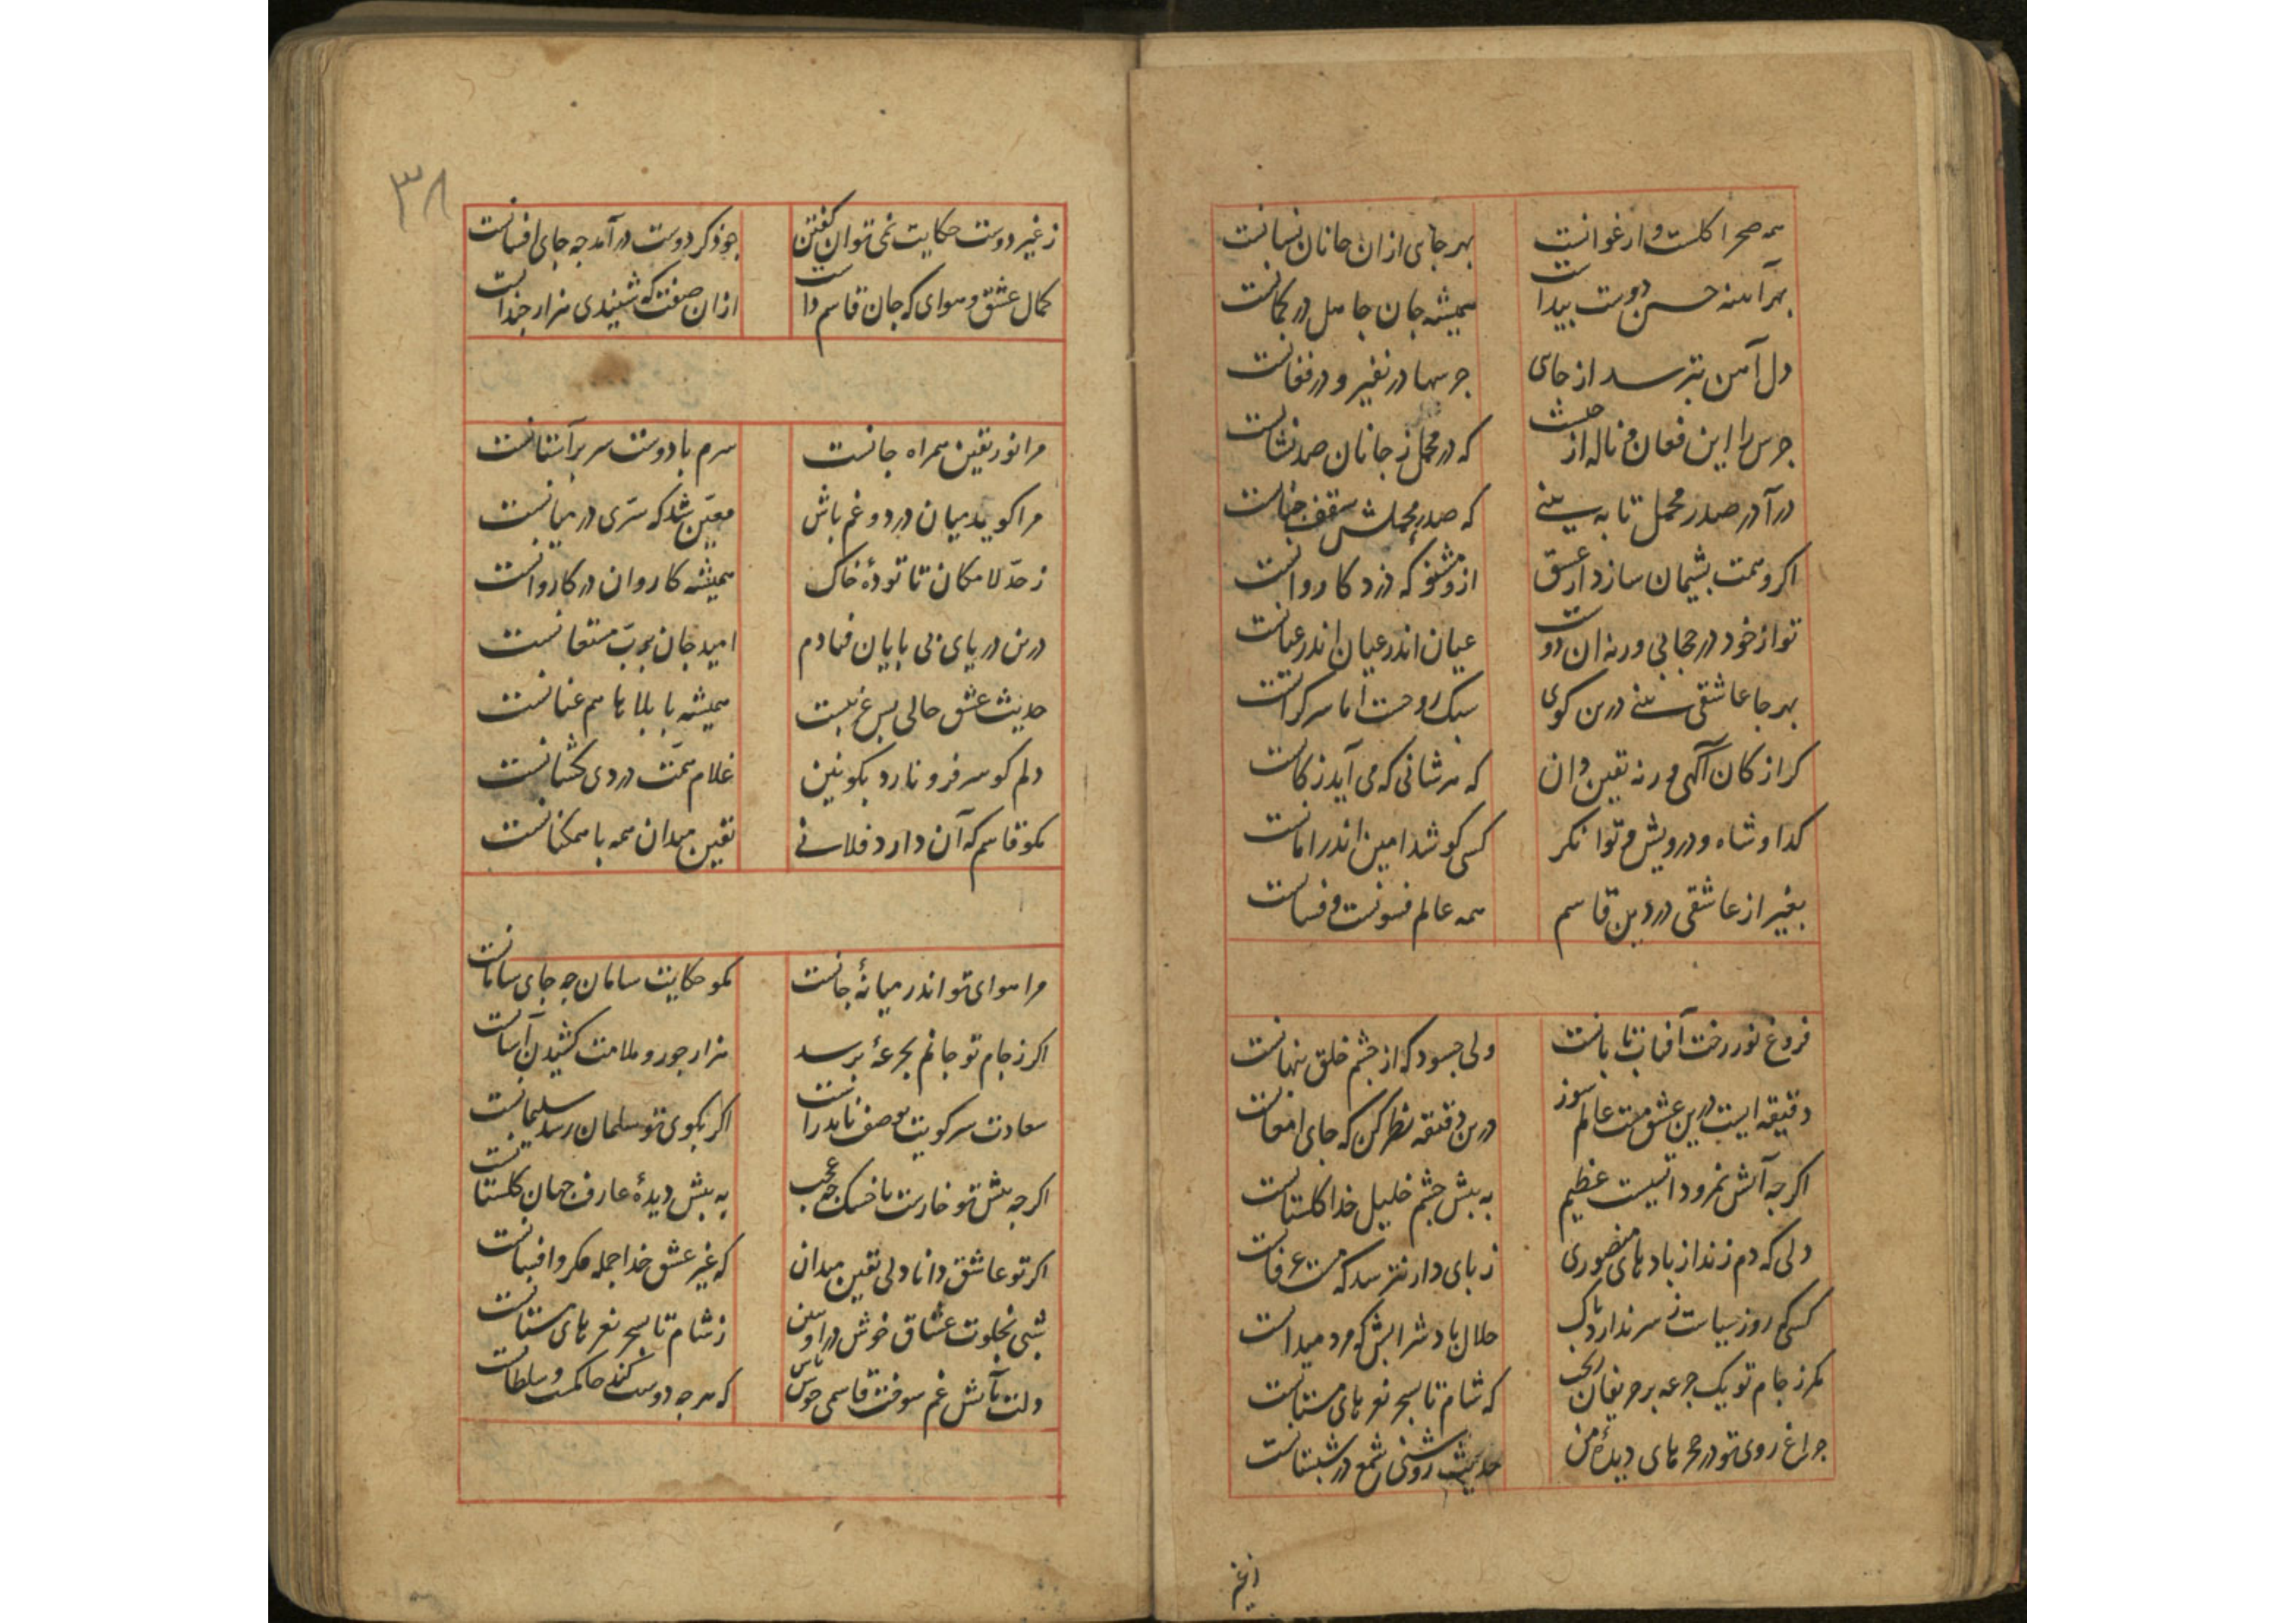 همه صحرا کلست و ارغوانست بهر جای ازان جانان نشانست
بهر آینه حسن دوست پیداست همیشه جان جاهل در کمانست
دل آمن بترسد از جای جرسها در نفیر و در فغانست
جرس را این فغان و ناله از چیست که در محمل ز جانان صد نشانست
درآ در صدر محمل تا به بینی که صدر محملش سقف جنانست
اکر وهمت پشیمان سازد از عشق ازو مشنو که دزد کاروانست
تو از خود در حجابی ورنه ان دوست عیان اندر عیان اندر عیانست
بهر جا عاشقی بینی درین کوی سبک روحست اما سرکرانست
کر از کان آکهی ورنه یقین دان که هر شانی که می آید ز کانست
کدا و شاه و درویش و توانکر کسی کو شد امین اندر امانست
بغیر از عاشقی در دین قاسم همه عالم فسونست و فسانست
فروغ نور رخت آفتاب تابانست ولی چسود که از چشم خلق پنهانست
دقیقه ایست درین عشق مست عالم سوز درین دقیقه نظر کن که جای امعانست
اکرچه آتش نمرود اتشیست عظیم به پیش چشم خلیل خدا کلستانست
دلی که دم زند از بادهای منصوری ز پای دار نترسد که مست عرفانست
کسی که روز سیاست ز سر ندارد باک حلال باد شرابش که مرد میدانست
مکر ز جام تو یک جرعه بر حریفان ریخت که شام تا بسحر نعرهای مستانست
چراغ روی تو در حجرهای دیدهٔ من حدیث روشنی شمع در شبستانست
زغیر
۳۸
ز غیر دوست حکایت نمی توان کفتن چو ذکر دوست درآمد چه جای افسانست
کمال عشق و هوای که جان قاسم راست ازان صفت که شنیدی هزار چندانست
مرا نور یقین همراه جانست سرم با دوست سر بر آستانست
مرا کوید میان درد و غم باش معین شد که سری در میانست
ز حد لامکان تا تودهٔ خاک همیشه کاروان در کاروانست
درین دریای بی پایان فتادم امید جان برب مستعانست
حدیث عشق حالی بس غریبست همیشه با بلاها هم عنانست
دلم کو سر فرو نارد بکونین غلام همت دردی کشانست
مکو قاسم که آن دارد فلانی یقین میدان همه با همکنانست
مرا هوای تو اندر میانهٔ جانست مکو حکایت سامان چه جای سامانست
اکر ز جام تو جانم بجرعهٔ برسد هزار جور و ملامت کشیدن آسانست
سعادت سر کویت بوصف ناید راست اکر بکوی تو سلمان رسد سلیمانست
اکرچه پیش تو خارست یا خسک چه عجب به پیش دیدهٔ عارف جهان کلستانست
اکر تو عاشق دانا دلی یقین میدان که غیر عشق خدا جمله مکر و افسانست
شبی بخلوت عشاق خوش درا و ببین ز شام تا بسحر نعرهای مستانست
دلت بآتش غم سوخت قاسمی خوش باش که هرچه دوست کند حاکمست و سلطانست